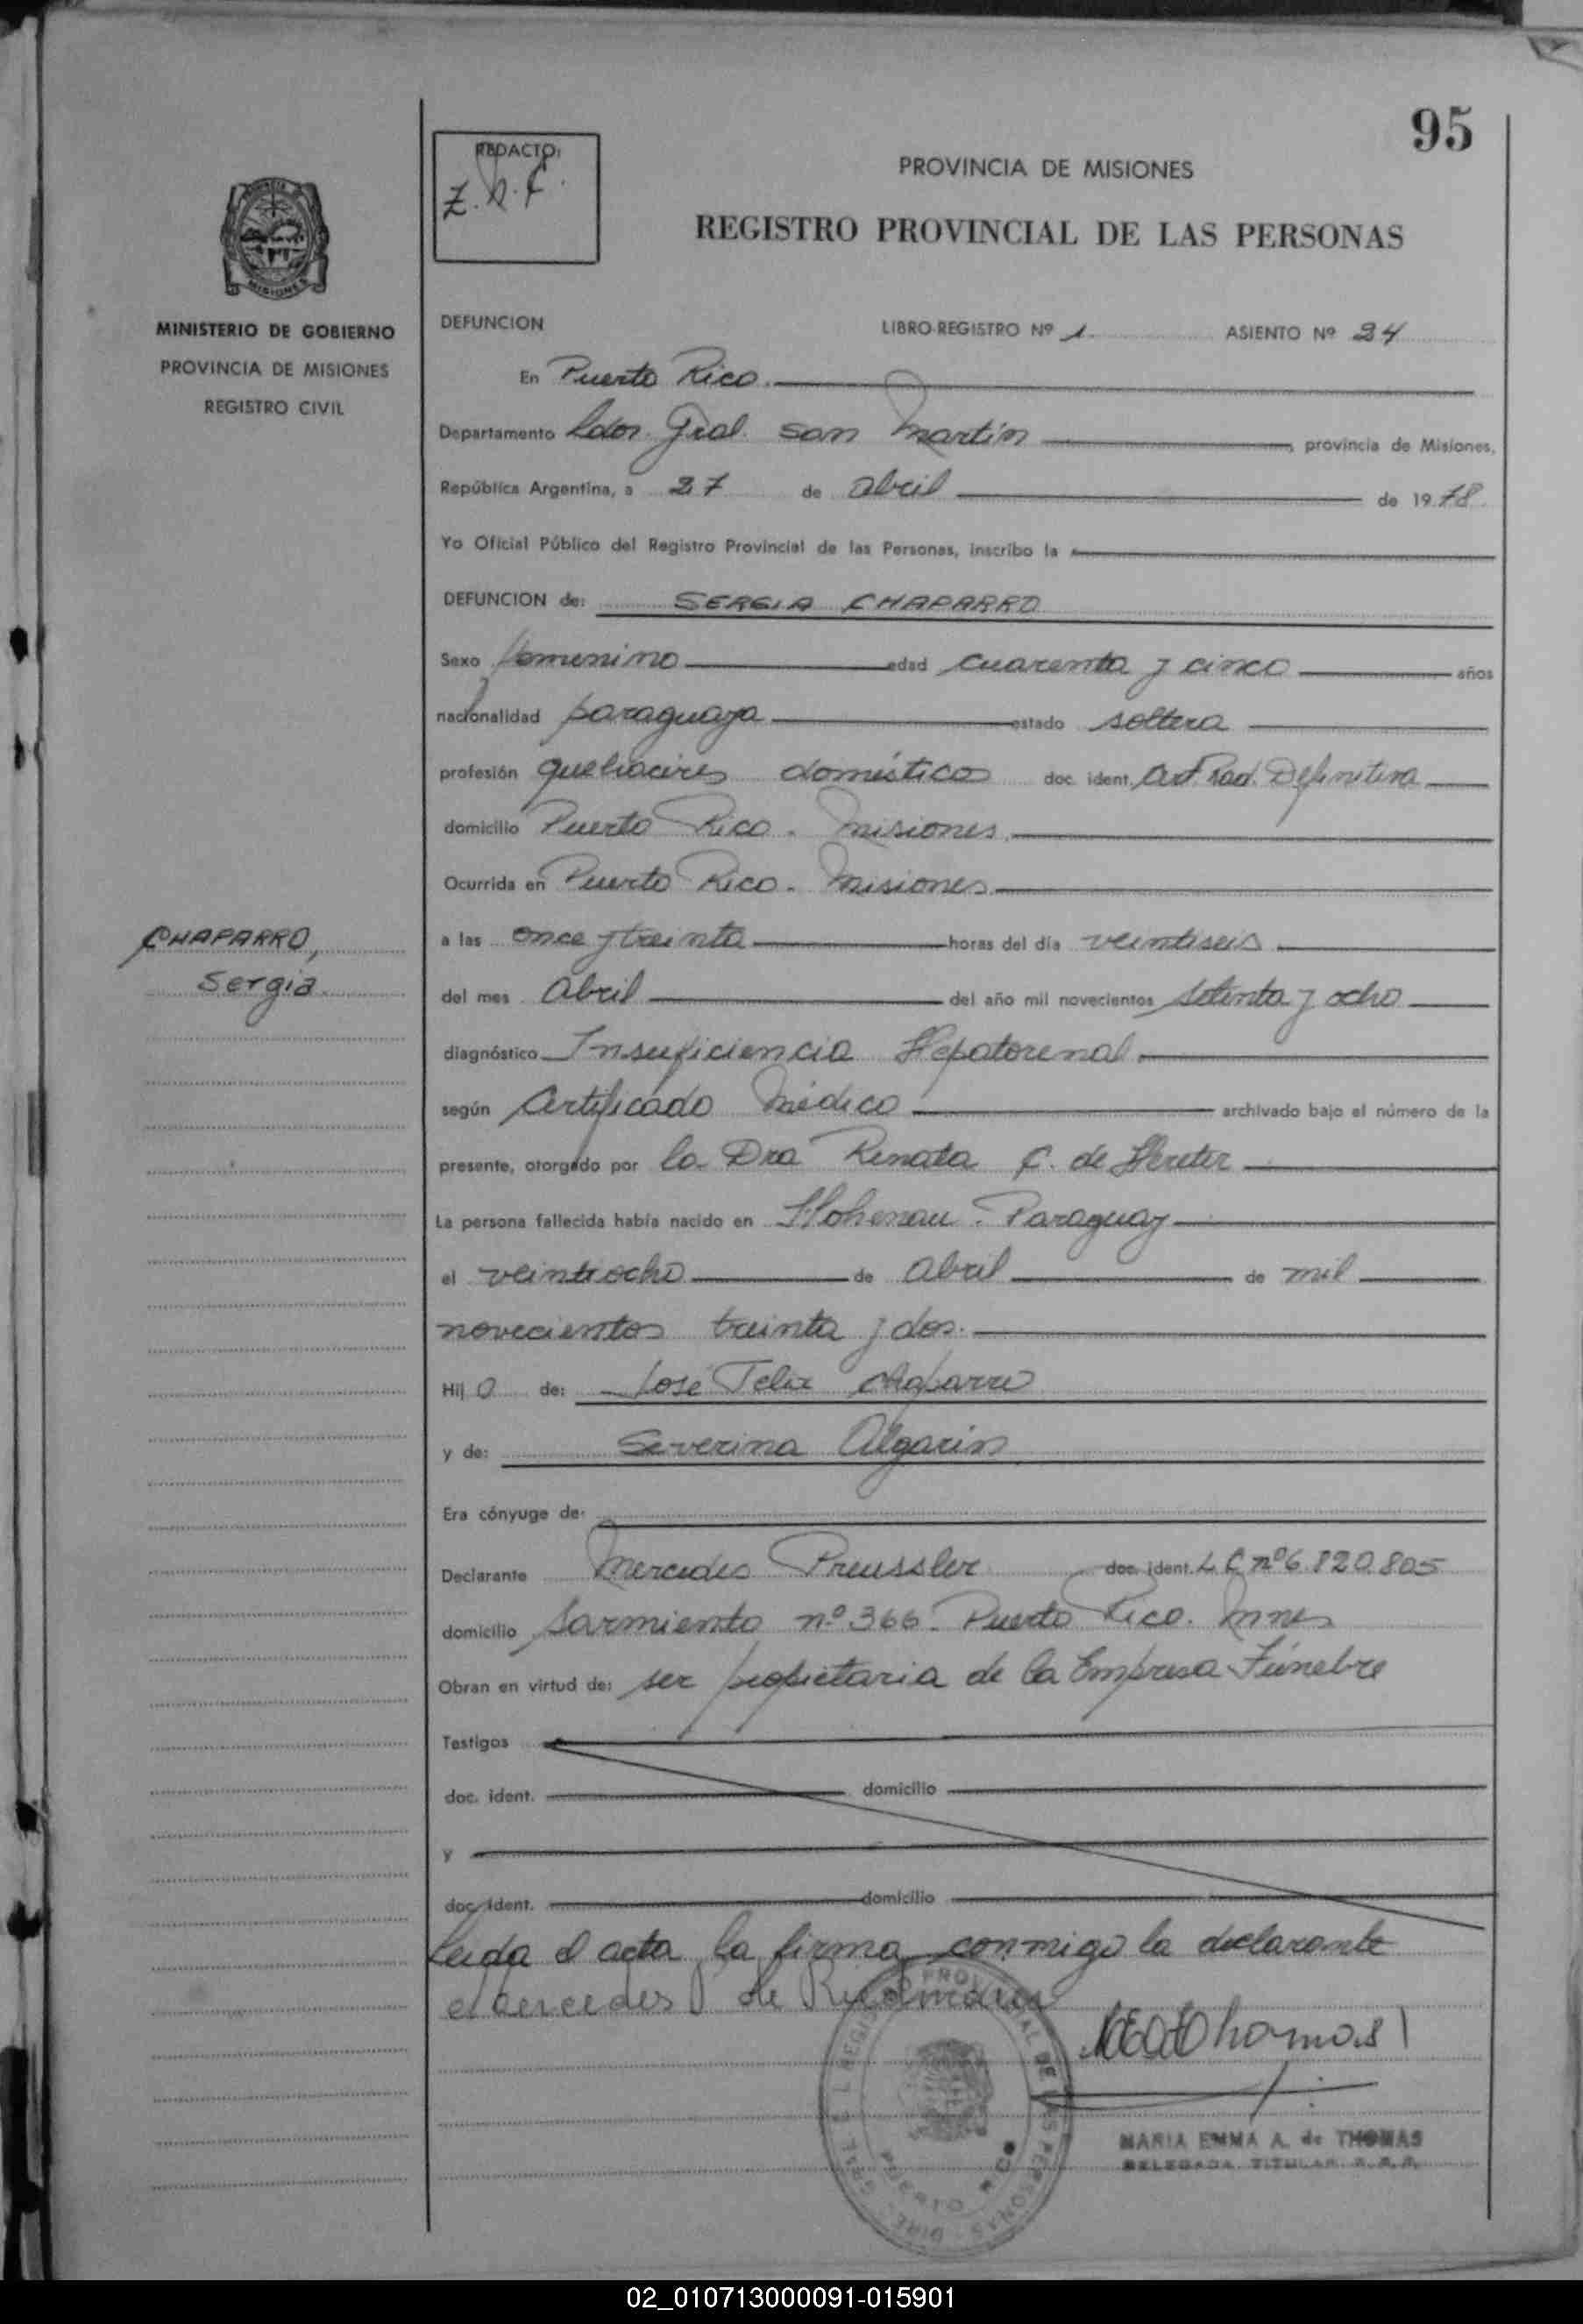 95
REDACTO:
Z. R. F.
PROVINCIA DE MISIONES
REGISTRO PROVINCIAL DE LAS PERSONAS
MISIONES
MINISTERIO DE GOBIERNO
PROVINCIA DE MISIONES
REGISTRO CIVIL
DEFUNCION LIBRO-REGISTRO Nº 1 ASIENTO Nº 24
En Puerto Rico.
Departamento Ldor. Gral. San Martín provincia de Misiones,
República Argentina, a 27 de abril de 1978.
Yo Oficial Público del Registro Provincial de las Personas, inscribo la
DEFUNCION de: SERGIA CHAPARRO
Sexo femenino edad cuarenta y cinco años
nacionalidad paraguaya estado soltera
profesión quehaceres domésticos doc. ident. Rad. Definitiva
domicilio Puerto Rico. Misiones
Ocurrida en Puerto Rico. Misiones
CHAPARRO,
Sergia
a las once y treinta horas del día veintiseis
del mes abril del año mil novecientos setenta y ocho
diagnóstico Insuficiencia Hepatorenal
según Certificado Médico archivado bajo el número de la
presente, otorgado por la Dra Renata C. de Hereter
La persona fallecida había nacido en Hohenau. Paraguay
el veintiocho de abril de mil
novecientos treinta y dos.
Hij o de: José Felix Chaparro
y de: Severina Algarin
Era cónyuge de:
Declarante Mercedes Preussler doc. ident. L C nº 6.820.805
domicilio Sarmiento nº 366. Puerto Rico. Mnes
Obran en virtud de: ser propietaria de la Empresa Fúnebre
Testigos
doc. ident. domicilio
y
doc. ident. domicilio
Leida el acta la firma conmigo la declarante
Mercedes P de
MARIA EMMA A. de THOMAS
DELEGADA TITULAR
PUERTO RICO
02_010713000091-015901